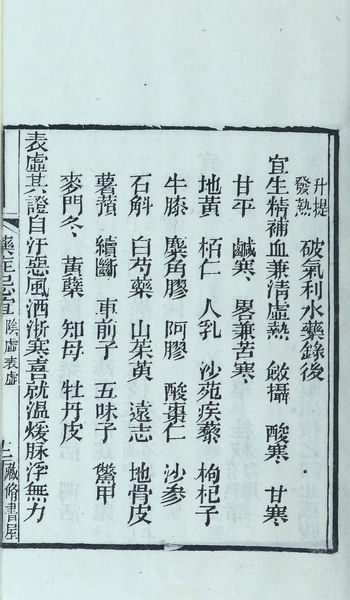 升提
發熱
破氣利水藥錄後
宜生精補血兼清虛熱 斂攝 酸寒 甘寒
甘平 鹹寒 畧兼苦寒
地黃 栢仁 人乳 沙苑疾藜 枸杞子
牛膝 麋角膠 阿膠 酸棗仁 沙參
石斛 白芍藥 山茱萸 遠志 地骨皮
薯蕷 續斷 車前子 五味子 鱉甲
麥門冬 黃蘗 知母 牡丹皮
表虛其證自汗惡風洒淅寒喜就溫煖脉浮無力
藥症忌宜 陰虛表虛 藏脩書屋